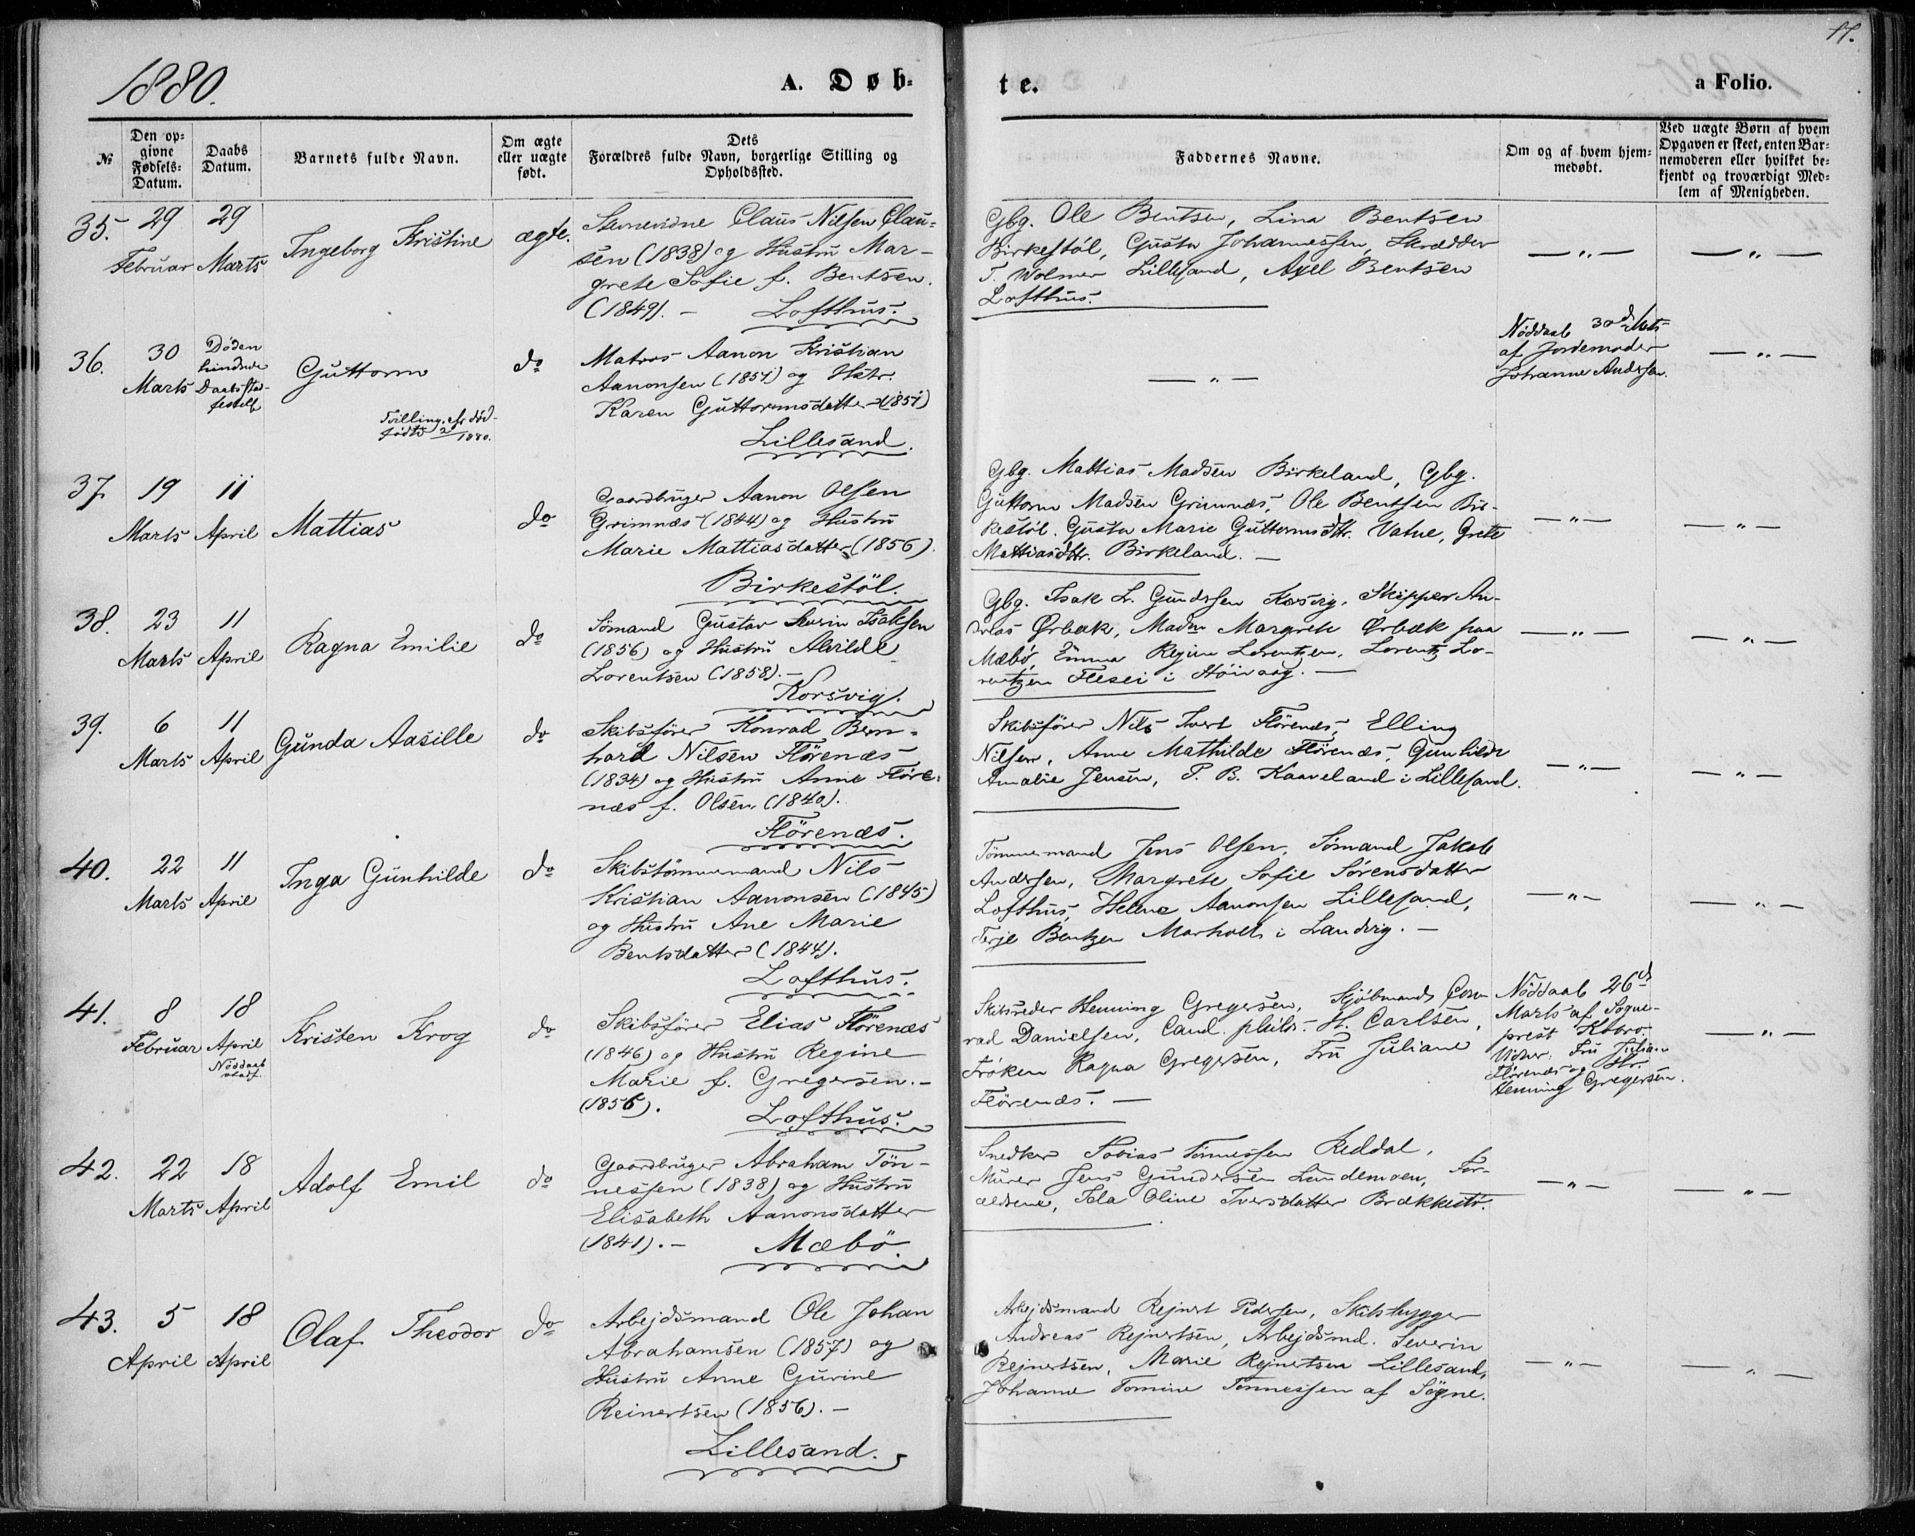 1880.
A. Døb-
te.
a Folio.
№
Den op-
givne
Fødsels-
Datum.
Daabs
Datum.
Barnets fulde Navn.
Om ægte
eller uægte
født.
Dets
Forældres fulde Navn, borgerlige Stilling og
Opholdssted.
Faddernes Navne.
Om og af hvem hjem-
medøbt.
Ved uægte Børn af hvem
Opgaven er skeet, enten Bar-
nemoderen eller hvilket be-
kjendt og troværdigt Med-
lem af Menigheden.
35.
29
Februar
29
Marts
Ingeborg Kristine
ægte.
Claus Nilsen Clau-
sen (1838) og Hustru Mar-
grete Sofie f. Bentsen.
(1849). –
Lofthus.
Gbg. Ole Bentsen, Lina Bentsen
Birkestöl, Gusta Johannessen, Skrædder
T. Wolmer Lillesand, Axel Bentsen
Lofthus.
— „ —
— „ —
36.
30
Marts
Døden
hindrede
Daabsstad-
festelse
Guttorm
Tvilling, død-
födt 1880.
do
Matros Aanon Kristian
Aanonsen (1851) og Hstr.
Karen Guttormsdatter (1851)
Lillesand.
— „ —
Nöddaab 30d Mts
af Jordemoder
Johanne Andersen.
— „ —
37.
19
Marts
11
April
Mattias
do
Gaardbruger Aanon Olsen
Grimnæs (1844) og Hustru
Marie Mattiasdatter (1856).
Birkestöl.
Gbg. Mattias Madsen Birkeland, Gbg.
Guttorm Madsen Grimnæs, Ole Bentsen Bir-
kestöl. Gusta Marie Guttormsdtr. Vatne, Grete
Mattiasdtr. Birkeland. —
— „ —
— „ —
38.
23
Marts
11
April
Ragna Emilie
do
Sømand Gustav Severin Isaksen
(1856) og Hustru Alvilde
Lorentsen (1858). –
Korsvig.
Gbg. Isak L. Gundersen Korsvig, Skipper An-
dreas Ørbæk, Madm Margrete Ørbæk paa
Mæbö, Emma Regine Lorentzen, Lorentz Lo-
rentzen i Höivaag. —
— „ —
— „ —
39.
6
Marts
11
April
Gunda Aasille
do
Skibsförer Konrad Bern-
hard Nilsen Flörenæs
(1834) og Hustru Anne Flöre-
næs f. Olsen (1840).
Flörenæs.
Skibsförer Nils Ivert Flörenæs, Elling
Nilsen, Anne Mathilde Flörenæs, Gunhilde
Amalie Jensen, T. B. Kaaveland i Lillesand.
— „ —
— „ —
40.
22
Marts
11
April
Inga Gunhilde
do
Skibstömmermand Nils
Kristian Aanonsen (1845)
og Hustru Ane Marie
Bentsdatter (1844).
Lofthus.
Tömmermand Jens Olsen, Sömand Jakob
Andersen, Margrete Sofie Sörensdatter
Lofthus, Helene Aanonsen Lillesand,
Terje Bentzen Marholt i Landvig. —
— „ —
— „ —
41.
8
Februar
18
April
Nöddaab
stadf.
Kristen Krog
do
Skibsförer Elias Flörenæs
(1846) og Hustru Regine
Marie f. Gregersen. –
(1856).
Lofthus.
Skibsreder Henning Gregersen, Kjøbmand Con-
rad Danielsen, Cand. philos. H. Carlsen,
Fröken Ragna Gregersen, Fru Juliane
Flörenæs. —
Nöddaab 26d
Marts af Sogne-
prest
Vidner: Fru Julian
Flörenæs og Hr.
Henning Gregersen.
— „ —
42.
22
Marts
18
April
Adolf Emil
do
Gaardbruger Abraham Tön-
nessen (1838) og Hustru
Elisabeth Aanonsdatter
(1841). –
Mæbö.
Snedker Tobias Tönnessen Reddal,
Murer Jens Gundersen Lindemoen, For-
ældrene, Oline Iversdatter Brækkestö.
— „ —
— „ —
43.
5
April
18
April
Olaf Theodor
do
Arbejdsmand Ole Johan
Abrahamsen (1857) og
Hustru Anne Gurine
Reinertsen (1856). –
Lillesand.
Arbejdsmand Rejnert Pedersen, Skibsbygger
Andreas Rejnertsen, Arbejdsmd. Severin
Rejnertsen, Marie Rejnertsen Lillesand,
Johanne Tomine Tönnessen af Sögne.
— „ —
— „ —